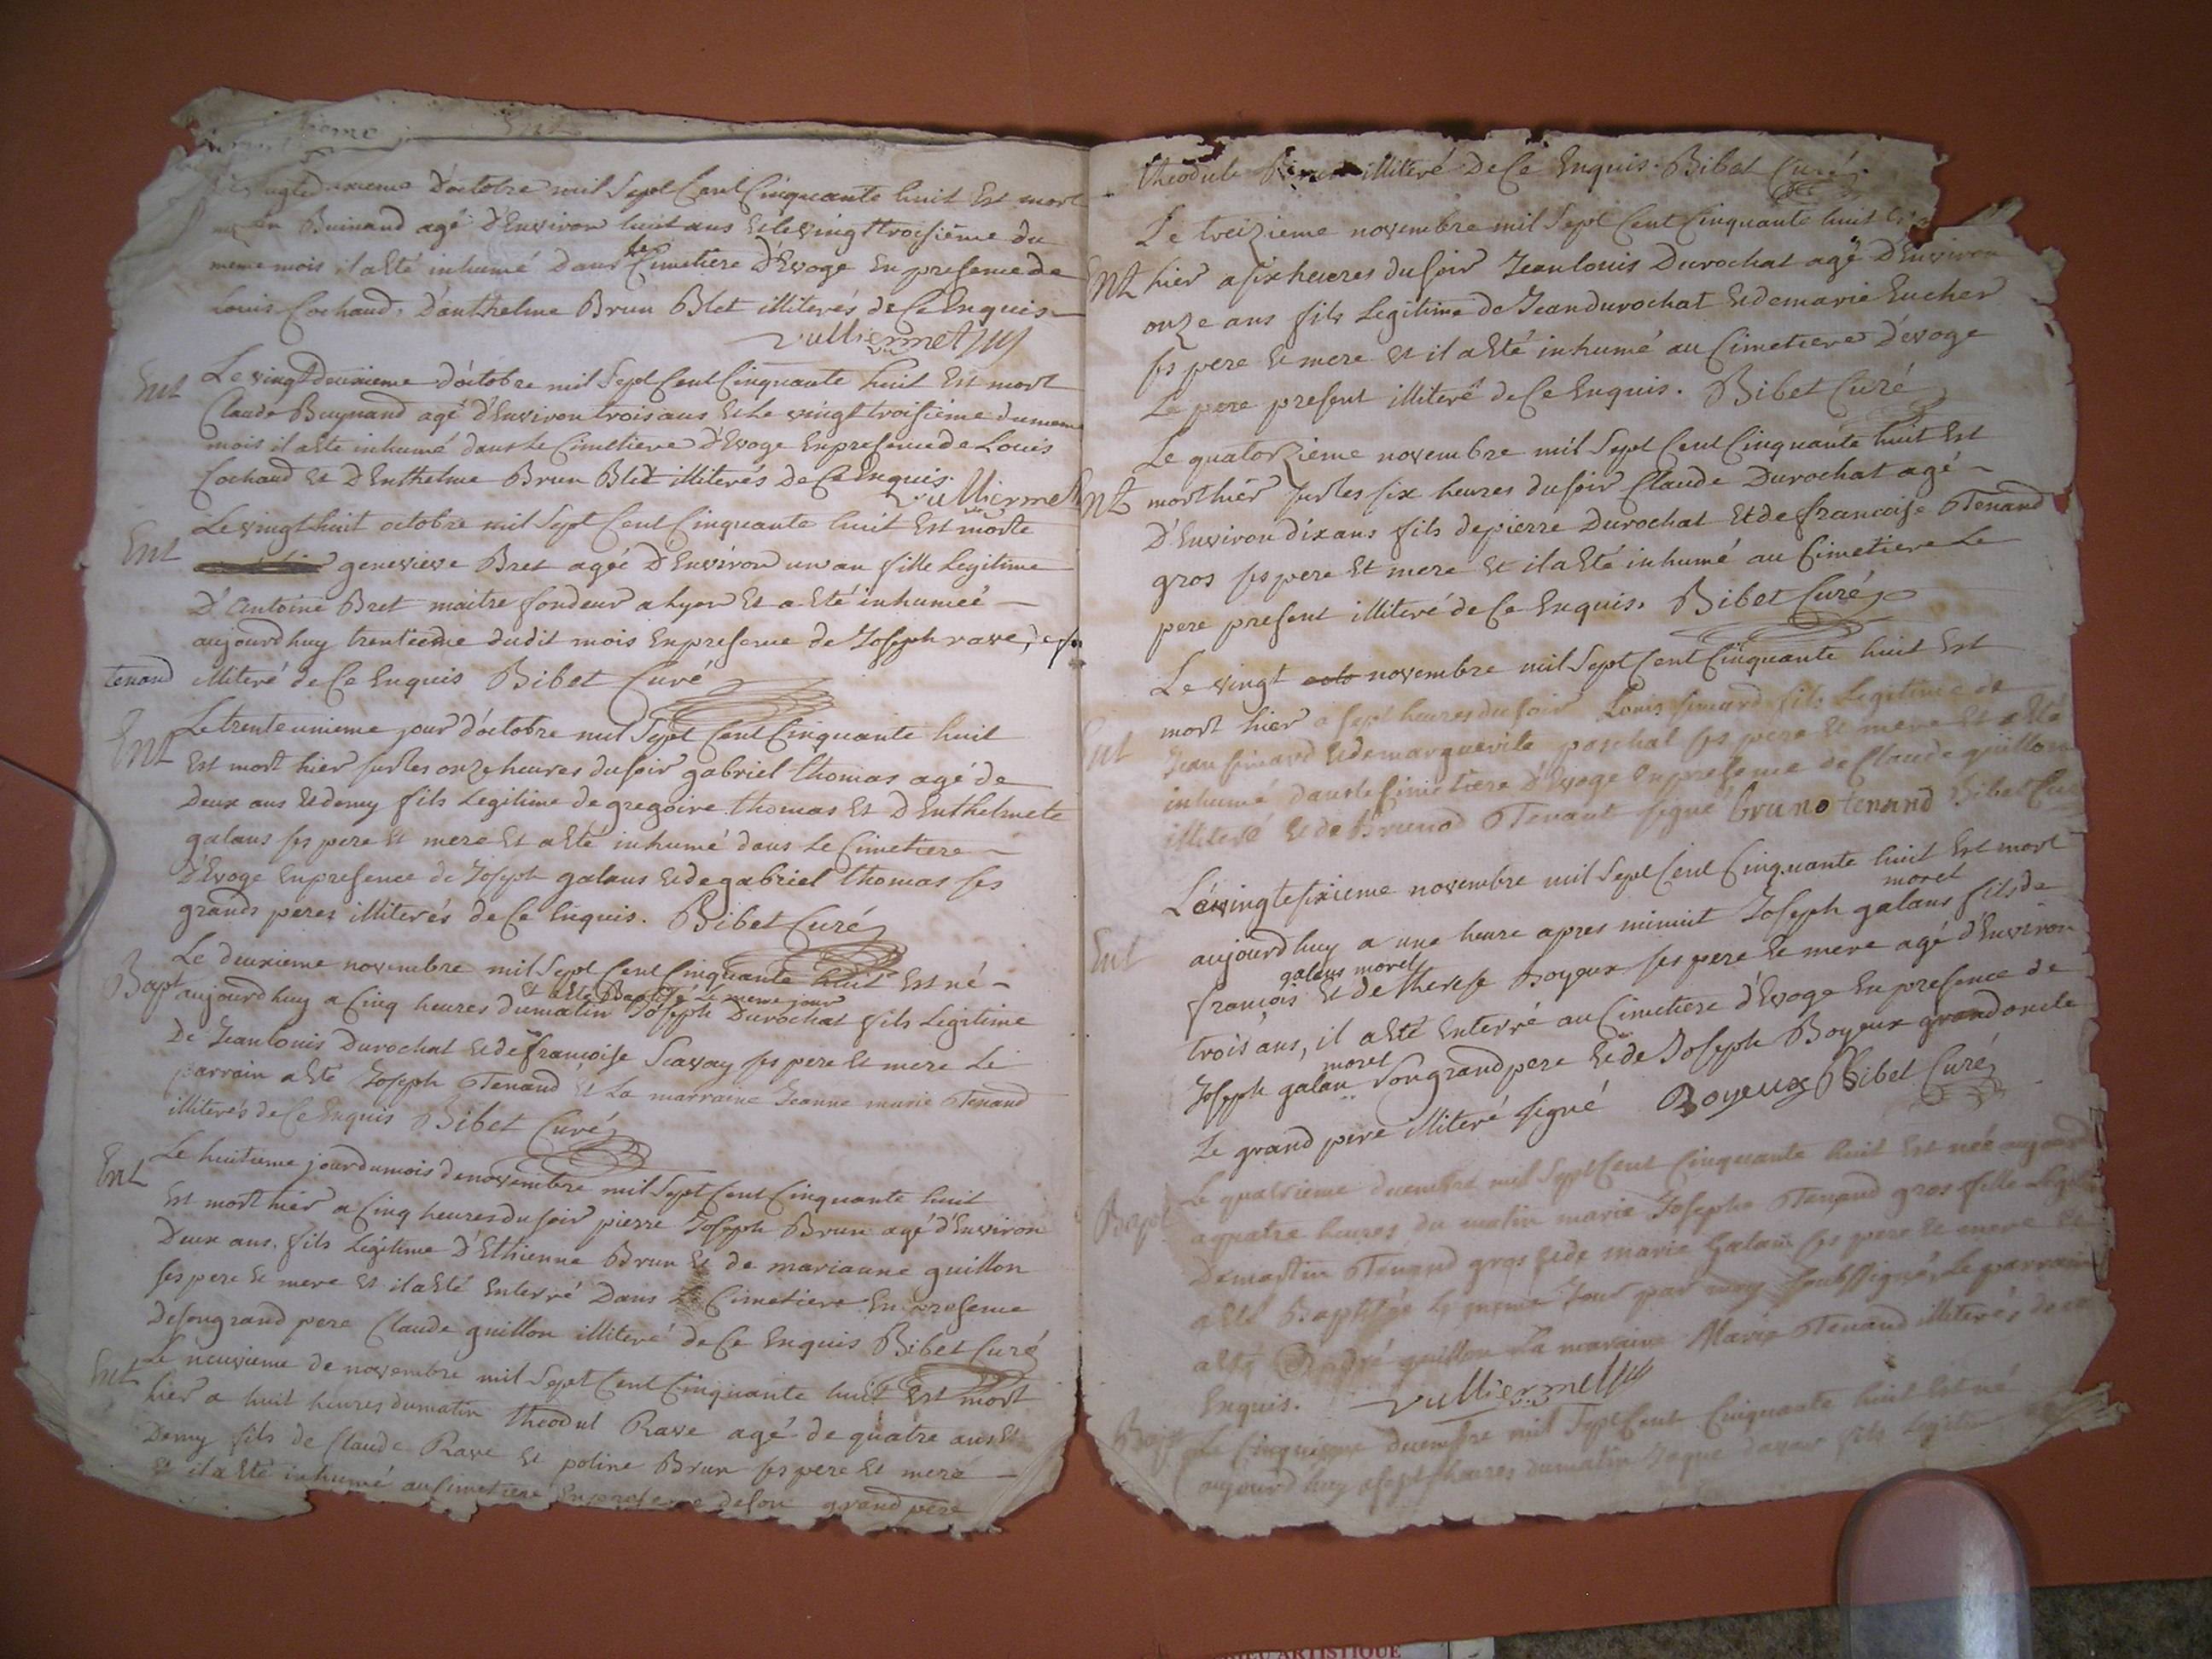 d'octobre mil Sept Cent Cinquante huit Est mort
Buinand agé d'Environ huit ans Et le vingt troisiéme du
meme mois il a Eté inhumé dans le Cimetiere d'Evoge En presence de
Louis Cochand, D'anthelme Brun Blet illiterés de Ce Enquis
vulliermet
Ent Le vingt deuxieme d'octobre mil Sept Cent Cinquante huit Est mort
Claude Buynand agé d'Environ trois ans Et Le vingt troisiéme du meme
mois il a Eté inhumé dans Le Cimetiere d'Evoge En presence de Louis
Cochand Et D'Enthelme Brun Blet illiterés de Ce Enquis.
vulliermet
Ent Le vingt huit octobre mil Sept Cent Cinquante huit Est morte
genevieve Bret agée D'Environ un an fille Legitime
D'Antoine Bret maitre fondeur a Lyon Et a Eté inhumée
aujourdhuy trentieme dudit mois En presence de Joseph rave,
tenand illiteré de Ce Enquis Bibet Curé
Ent Le trente unieme jour d'octobre mil Sept Cent Cinquante huit
Est mort hier sur les onze heures du soir gabriel thomas agé de
Deux ans Et demy fils Legitime de gregoire thomas Et D'Enthelmete
galans ses pere Et mere Et a Eté inhumé dans Le Cimetiere
d'Evoge En presence de Joseph galans Et de gabriel thomas ses
grands peres illiterés de Ce Enquis. Bibet Curé
Le deuxieme novembre mil Sept Cent Cinquante huit Est né
Et a Eté Baptisé Le meme jour
Bapt aujourdhuy a Cinq heures du matin Joseph Durochat fils Legitime
De Jean louis Durochat Et de francoise Savay ses pere Et mere Le
parrain a Eté Joseph Tenand Et La marraine Jeanne marie Tenand
illiterés de Ce Enquis Bibet Curé
Ent Le huitieme jour du mois de novembre mil Sept Cent Cinquante huit
Est mort hier a Cinq heures du soir pierre Joseph Brun agé d'Environ
Deux ans, fils Légitime D'Ethienne Brun Et de marianne guillon
ses pere Et mere Et il a Eté Enterré Dans Le Cimetiere En presence
de son grand pere Claude guillon illiteré de Ce Enquis Bibet Curé
Ent Le neuvieme de novembre mil Sept Cent Cinquante huit Est mort
hier a huit heures du matin theodul Rave agé de quatre ans Et
Demy fils de Claude Rave Et poline Brun ses pere Et mere
Et il a Eté inhumé au Cimetiere En presence de son grand pere
theodule illiteré De Ce Enquis. Bibet Curé
Le treizieme novembre mil Sept Cent Cinquante huit
Ent hier a six heures du soir Jean louis Durochat agé D'Environ
onze ans fils Legitime de Jean durochat Et de marie Eucher
ses pere Et mere Et il a Eté inhumé au Cimetiere d'Evoge
Le pere present illiteré de Ce Enquis. Bibet Curé
Le quatorzieme novembre mil Sept Cent Cinquante huit Est
Ent mort hier sur les six heures du soir Claude Durochat agé
D'Environ dix ans fils de pierre Durochat Et de francoise Tenand
gros ses pere Et mere Et il a Eté inhumé au Cimetiere Le
pere present illiteré de Ce Enquis. Bibet Curé
Le vingt novembre mil Sept Cent Cinquante huit Est
Ent mort hier a sept heures du soir Louis simard fils Legitime de
Jean simard Et de marguerite paschal ses pere Et mere Et a Eté
inhumé dans le Cimetiere d'Evoge En presence de Claude guillon
illiteré Et de Brunod Tenant signé bruno tenand Bibet Curé
Le vingt sixieme novembre mil Sept Cent Cinquante huit Est mort
morel
Ent aujourdhuy a une heure apres minuit Joseph galans fils de
galans morel
francois Et de therese Boyeux ses pere Et mere agé d'Environ
trois ans, il a Eté Enterré au Cimetiere d'Evoge En presence de
morel
Joseph galan son grand pere Et de Joseph Boyeux grand oncle
Le grand pere illiteré signé Boyeux Bibet Curé
Bapt Le quatrieme decembre mil Sept Cent Cinquante huit Est née
a quatre heures du matin marie Josephe Tenand gros fille
De martin Tenand gros Et de marie Galan ses pere Et mere Et
a Eté Baptisée Le meme Jour par moy soussigné, Le parrain
a Eté André guillon La maraine Marie Tenand illiterés de ce
Enquis. vulliermet
Bapt Le Cinquieme decembre mil Sept Cent Cinquante huit Est né
aujourdhuy a sept heures du matin Jaque fils
ARTISTIQUE